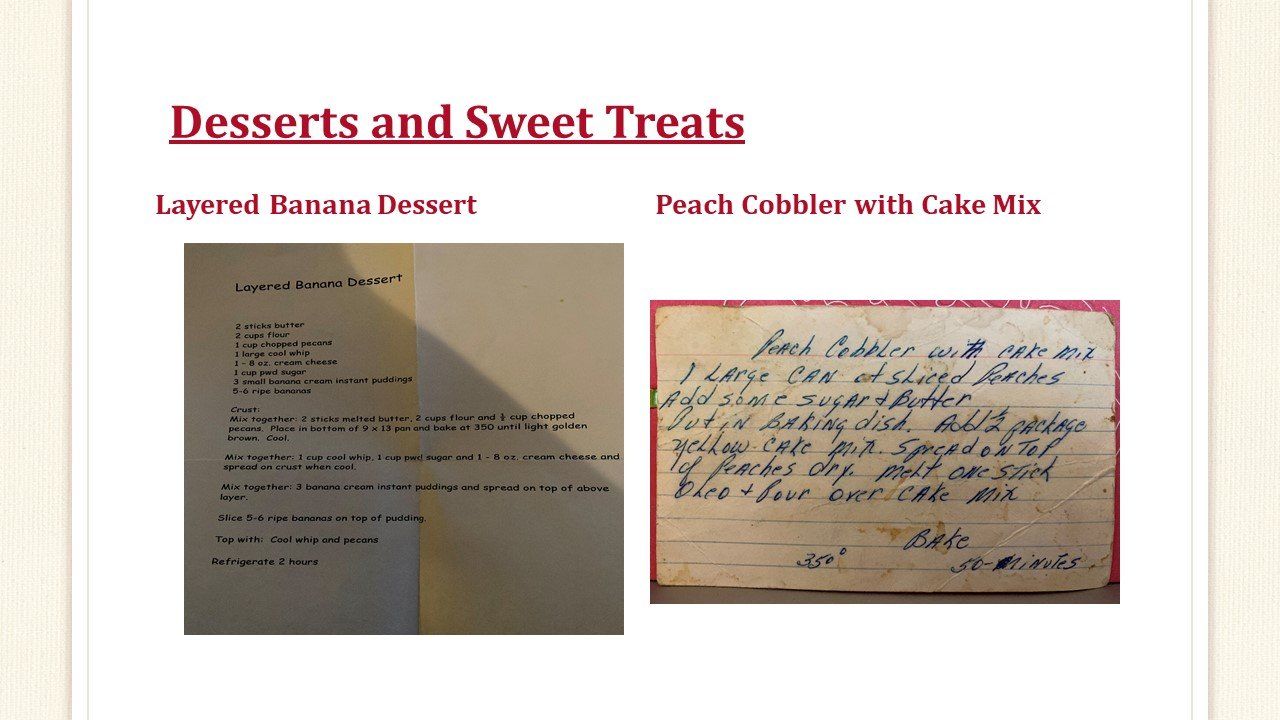 Desserts and Sweet Treats
Layered Banana Dessert
Layered Banana Dessert
2 sticks butter
2 cups flour
1 cup chopped pecans
1 large cool whip
1 - 8 oz. cream cheese
1 cup pwd sugar
3 small banana cream instant puddings
5-6 ripe bananas
Crust:
Mix together: 2 sticks melted butter, 2 cups flour and ½ cup chopped
pecans. Place in bottom of 9 x 13 pan and bake at 350 until light golden
brown. Cool.
Mix together: 1 cup cool whip, 1 cup pwd sugar and 1 - 8 oz. cream cheese and
spread on crust when cool.
Mix together: 3 banana cream instant puddings and spread on top of above
layer.
Slice 5-6 ripe bananas on top of pudding.
Top with: Cool whip and pecans
Refrigerate 2 hours
Peach Cobbler with Cake Mix
Peach Cobbler with cake mix
1 Large can of sliced Peaches
Add some sugar & Butter
Put in Baking dish. Add ½ package
yellow cake mix. Spread on Top
of Peaches dry. melt one stick
Oleo & Pour over cake mix
Bake
350° 50-minutes